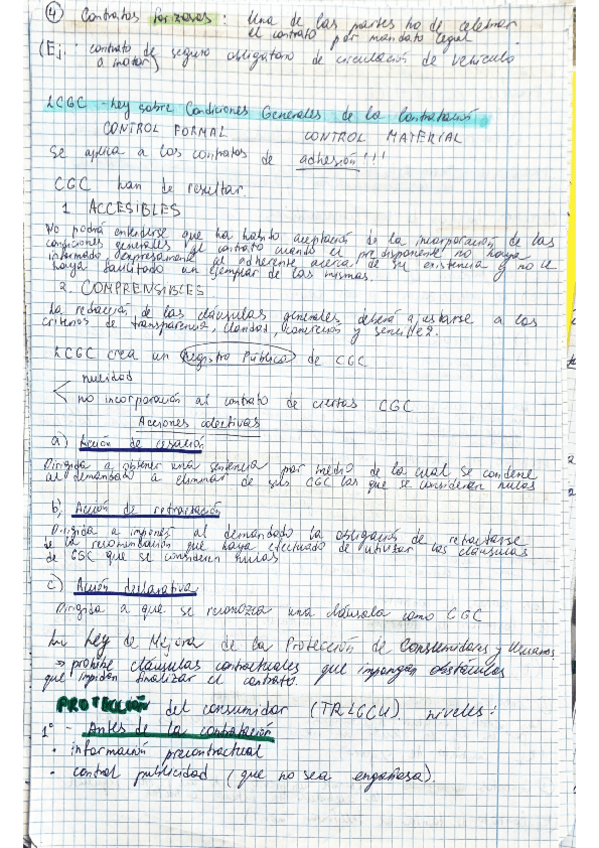 ④ Contratos forzosos: Una de las partes ha de celebrar
el contrato por mandato legal
(Ej: contrato de seguro obligatorio de circulación de vehículo
a motor)
LCGC - Ley sobre Condiciones Generales de la Contratación
CONTROL FORMAL CONTROL MATERIAL
Se aplica a los contratos de adhesión!!!
CGC han de resultar.
1. ACCESIBLES
No podrá entenderse que ha habido aceptación de la incorporación de las
condiciones generales al contrato cuando el predisponente no haya
informado expresamente al adherente acerca de su existencia y no le
haya facilitado un ejemplar de las mismas.
2. COMPRENSIBLES
La redacción de las cláusulas generales deberá ajustarse a los
criterios de transparencia, claridad, concreción y sencillez.
LCGC crea un Registro Público de CGC
nulidad
no incorporación al contrato de ciertas CGC
Acciones colectivas
a) Acción de cesación
Dirigida a obtener una sentencia por medio de la cual se condene
al demandado a eliminar de sus CGC las que se consideran nulas
b) Acción de retractación
Dirigida a imponer al demandado la obligación de retractarse
de la recomendación que haya efectuado de utilizar las cláusulas
de CGC que se consideren nulas
c) Acción declarativa:
Dirigida a que se reconozca una cláusula como CGC
Ley de Mejora de la Protección de Consumidores y Usuarios
⇒ prohíbe cláusulas contractuales que impongan obstáculos
que impidan finalizar el contrato.
PROTECCIÓN del consumidor (TRLGCU). niveles:
1º - Antes de la contratación
· información precontractual
· control publicidad (que no sea engañosa).